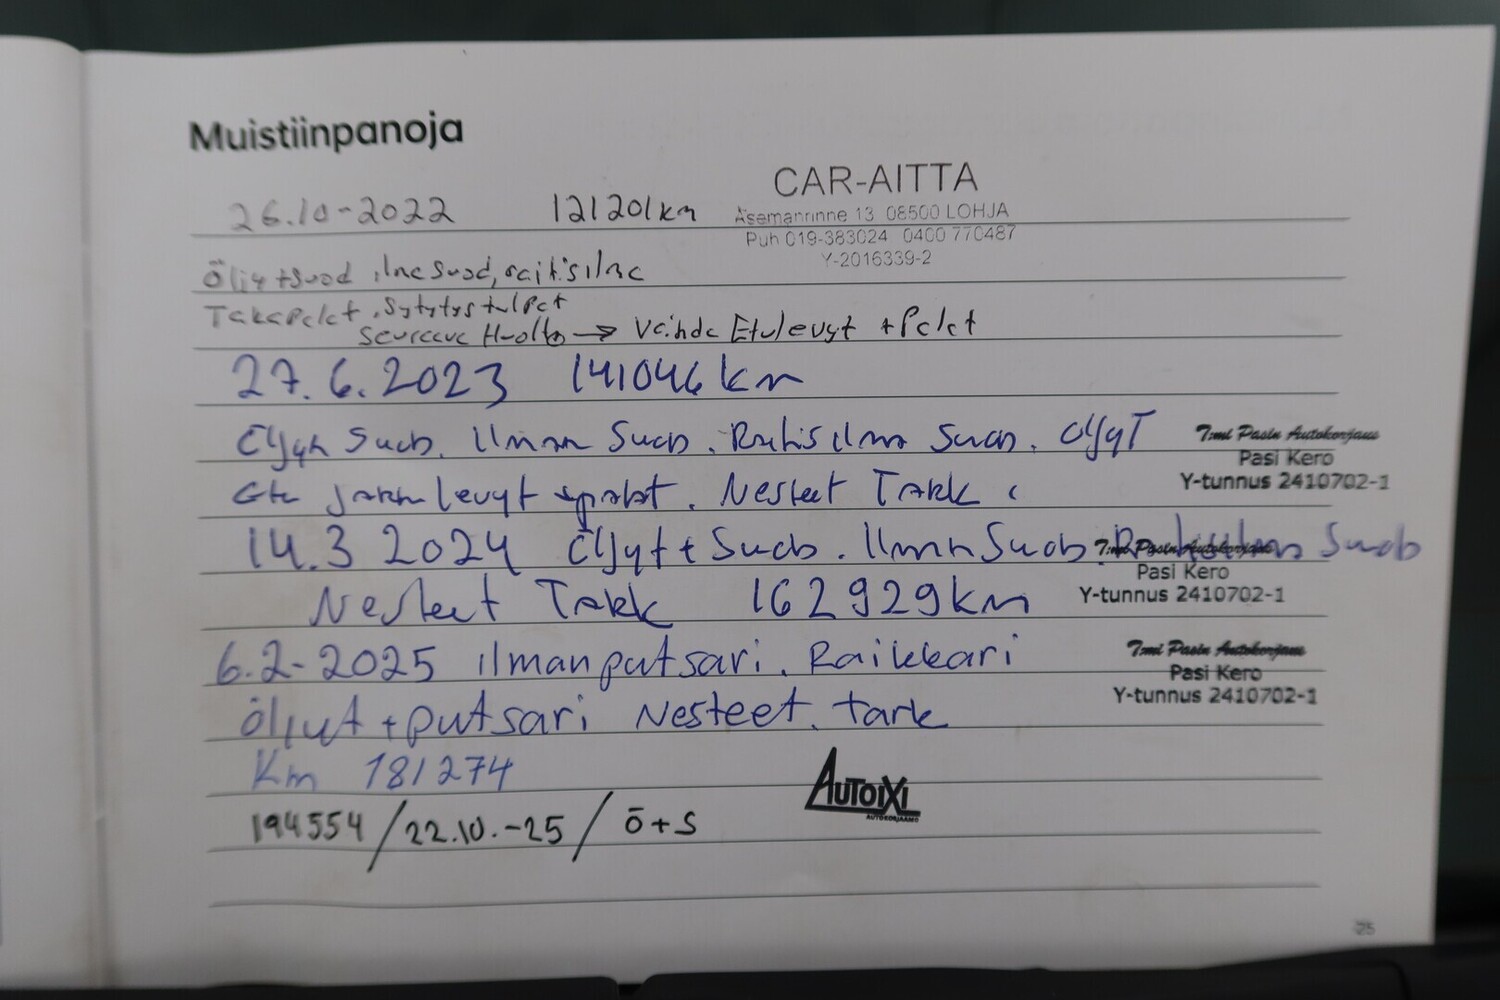 Muistiinpanoja
CAR-AITTA
26.10-2022 121201km
Asemanrinne 13 08500 LOHJA
Puh 019-383024 0400 770487
Y-2016339-2
Öljy+suod ilmasuod, raitisilma
Takapalat, Sytytystulpat
Seuraava Huolto → Vaihda Etulevyt + Palat
27.6.2023 141046 km
Öljyn Suod. Ilman Suod. Raitisilma Suod. Öljyt
Tmi Pasin Autokorjaus
Pasi Kero
Etu jarru levyt palat. Nesteet Tark
Y-tunnus 2410702-1
14.3 2024 Öljyt + Suod. Ilman Suod. Suod
Tmi Pasin Autokorjaus
Pasi Kero
Nesteet Tark 162929km
Y-tunnus 2410702-1
6.2-2025 ilmanputsari. Raikkari
Tmi Pasin Autokorjaus
Pasi Kero
öljyt + putsari Nesteet. tark
Y-tunnus 2410702-1
Km 181274
AUTOIXI
AUTOKORJAAMO
194554 / 22.10.-25 / ö+s
25